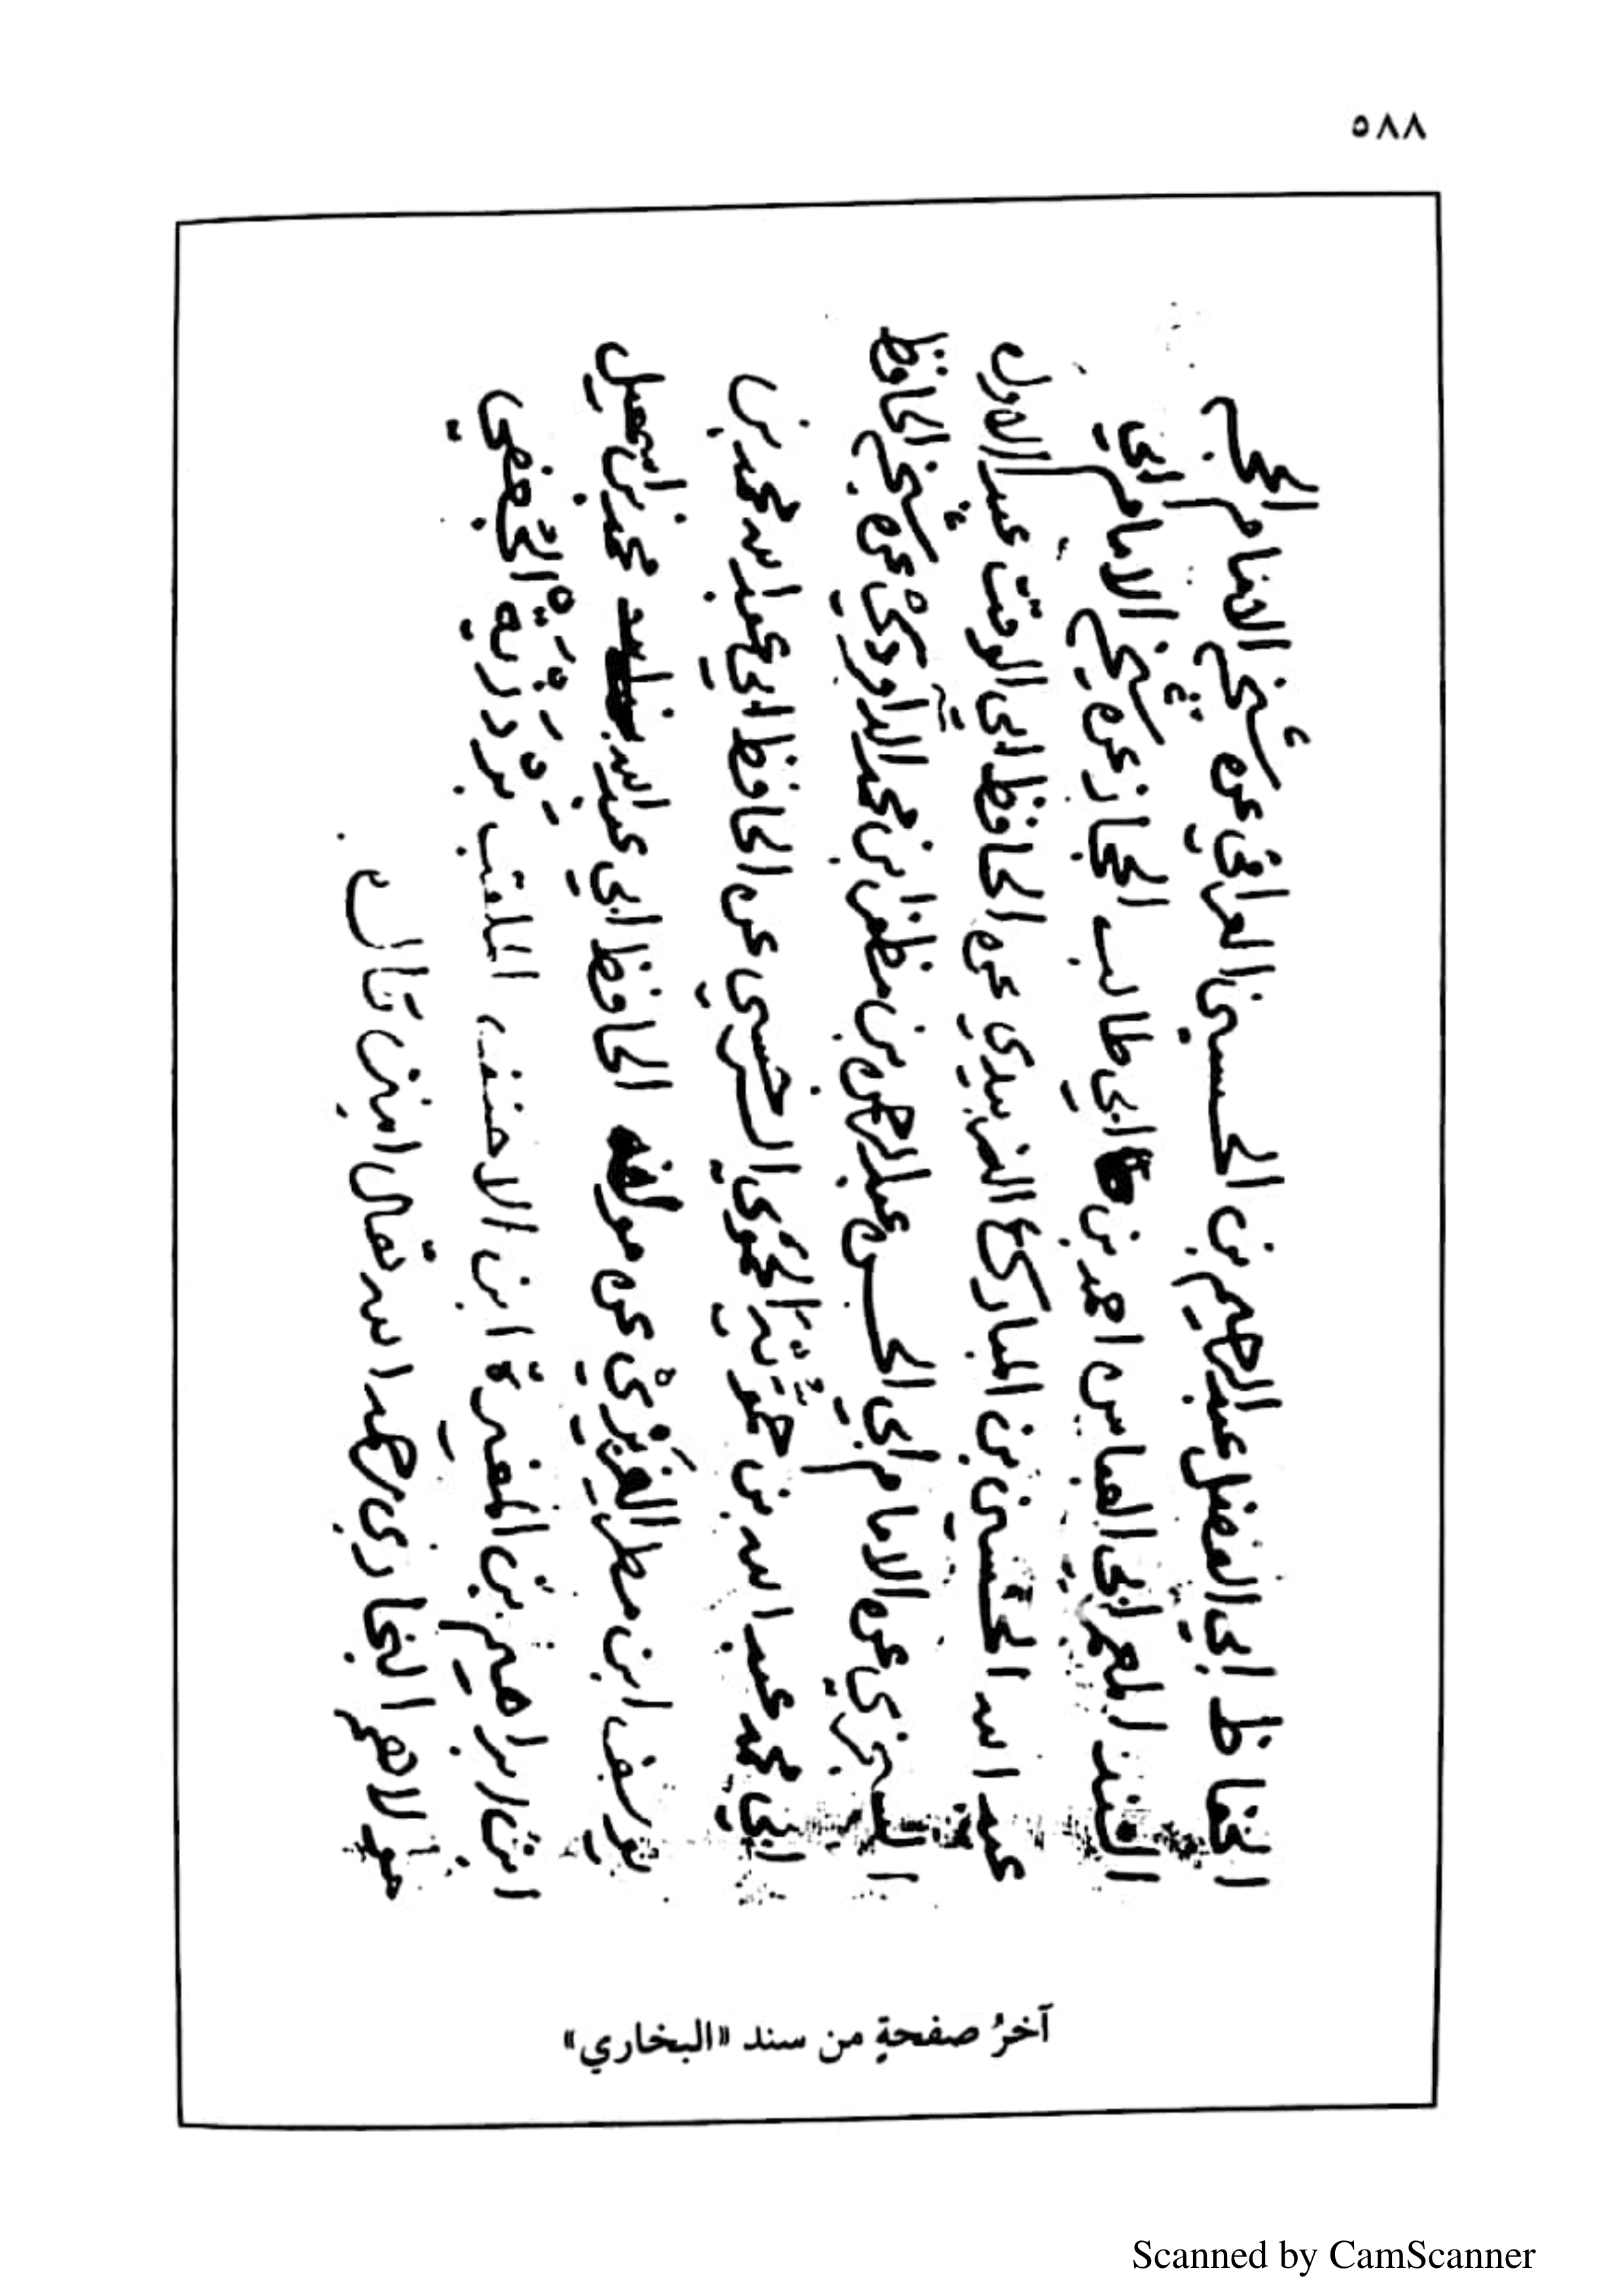 ٥٨٨
الحفاظ ابي الفضل عبد الرحيم بن الحسين العراقي عن شيخ الامام
السند المعمر ابي العباس احمد بن ابي طالب الحجاز عن شيخ الامام ابي
عبد الله الحسين بن المبارك الزبيدي عن الحافظ ابي الوقت عبد الاول
السجزي عن الامام ابي الحسن عبد الرحمن بن مظفر ابن محمد الداودي عن شيخ الحافظ
ابي محمد عبد الله بن حمويه الحموي السرخسي عن الحافظ ابي عبد الله محمد بن
يوسف ابن مطر الفربري عن مولفه الحافظ ابي عبد الله محمد بن اسمعيل
ابن ابراهيم بن المغيرة ابن الاحنف الملقب بردزبه الجعفي
مولاهم البخاري رحمه الله تعالى امين قال
آخرُ صفحةٍ من سند «البخاري»
Scanned by CamScanner